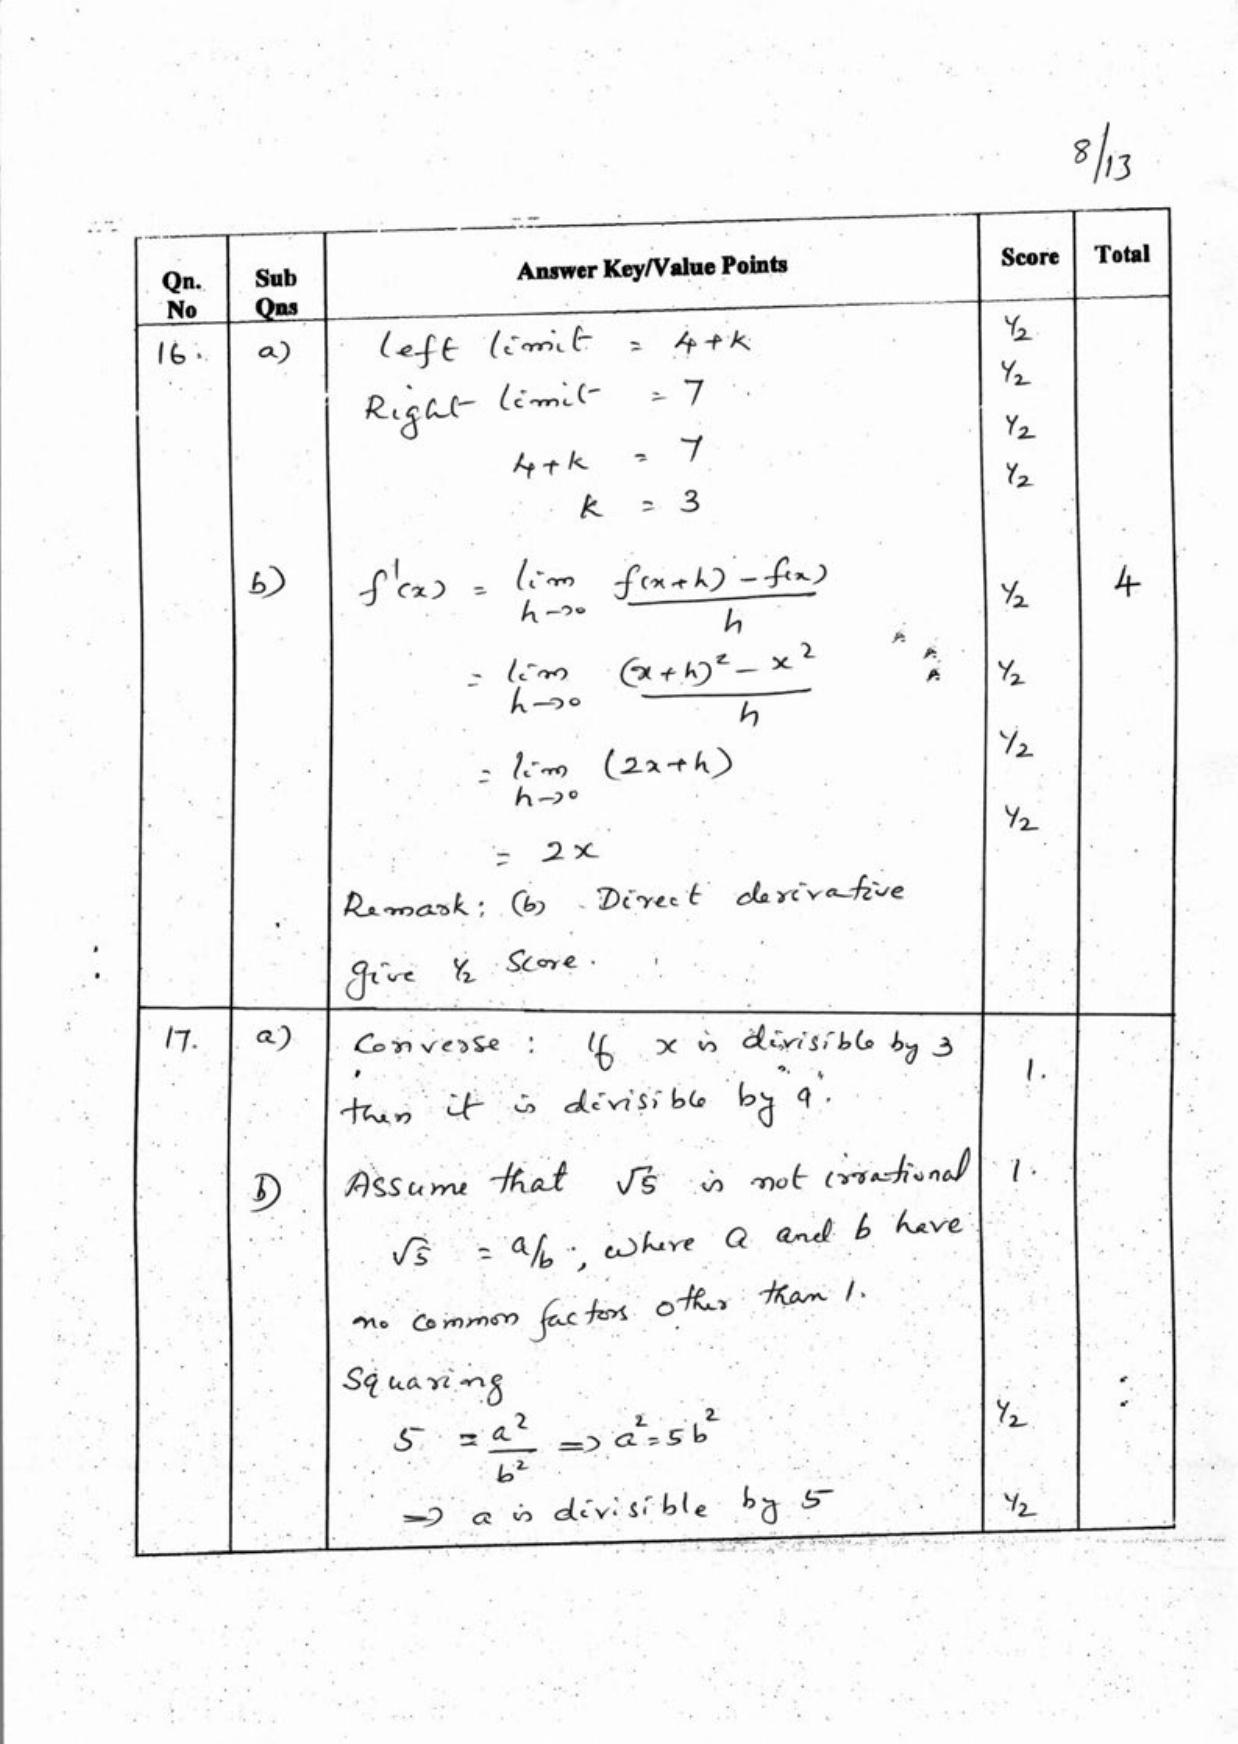 8/13
Qn. No	Sub Qns	Answer Key/Value Points	Score	Total
16.	a)	left limit = 4+k	1/2
Right limit = 7	1/2
4+k = 7	1/2
k = 3	1/2
b)	f'(x) = lim h→0 (f(x+h) – f(x))/h	1/2	4
= lim h→0 ((x+h)² – x²)/h	1/2
= lim h→0 (2x+h)	1/2
= 2x	1/2
Remark: (b) Direct derivative
give 1/2 Score.
17.	a)	Converse : If x is divisible by 3	1.
then it is divisible by 9.
b)	Assume that √5 is not irrational	1.
√5 = a/b ; where a and b have
no common factors other than 1.
Squaring
5 = a²/b² ⇒ a² = 5b²	1/2
⇒ a is divisible by 5	1/2